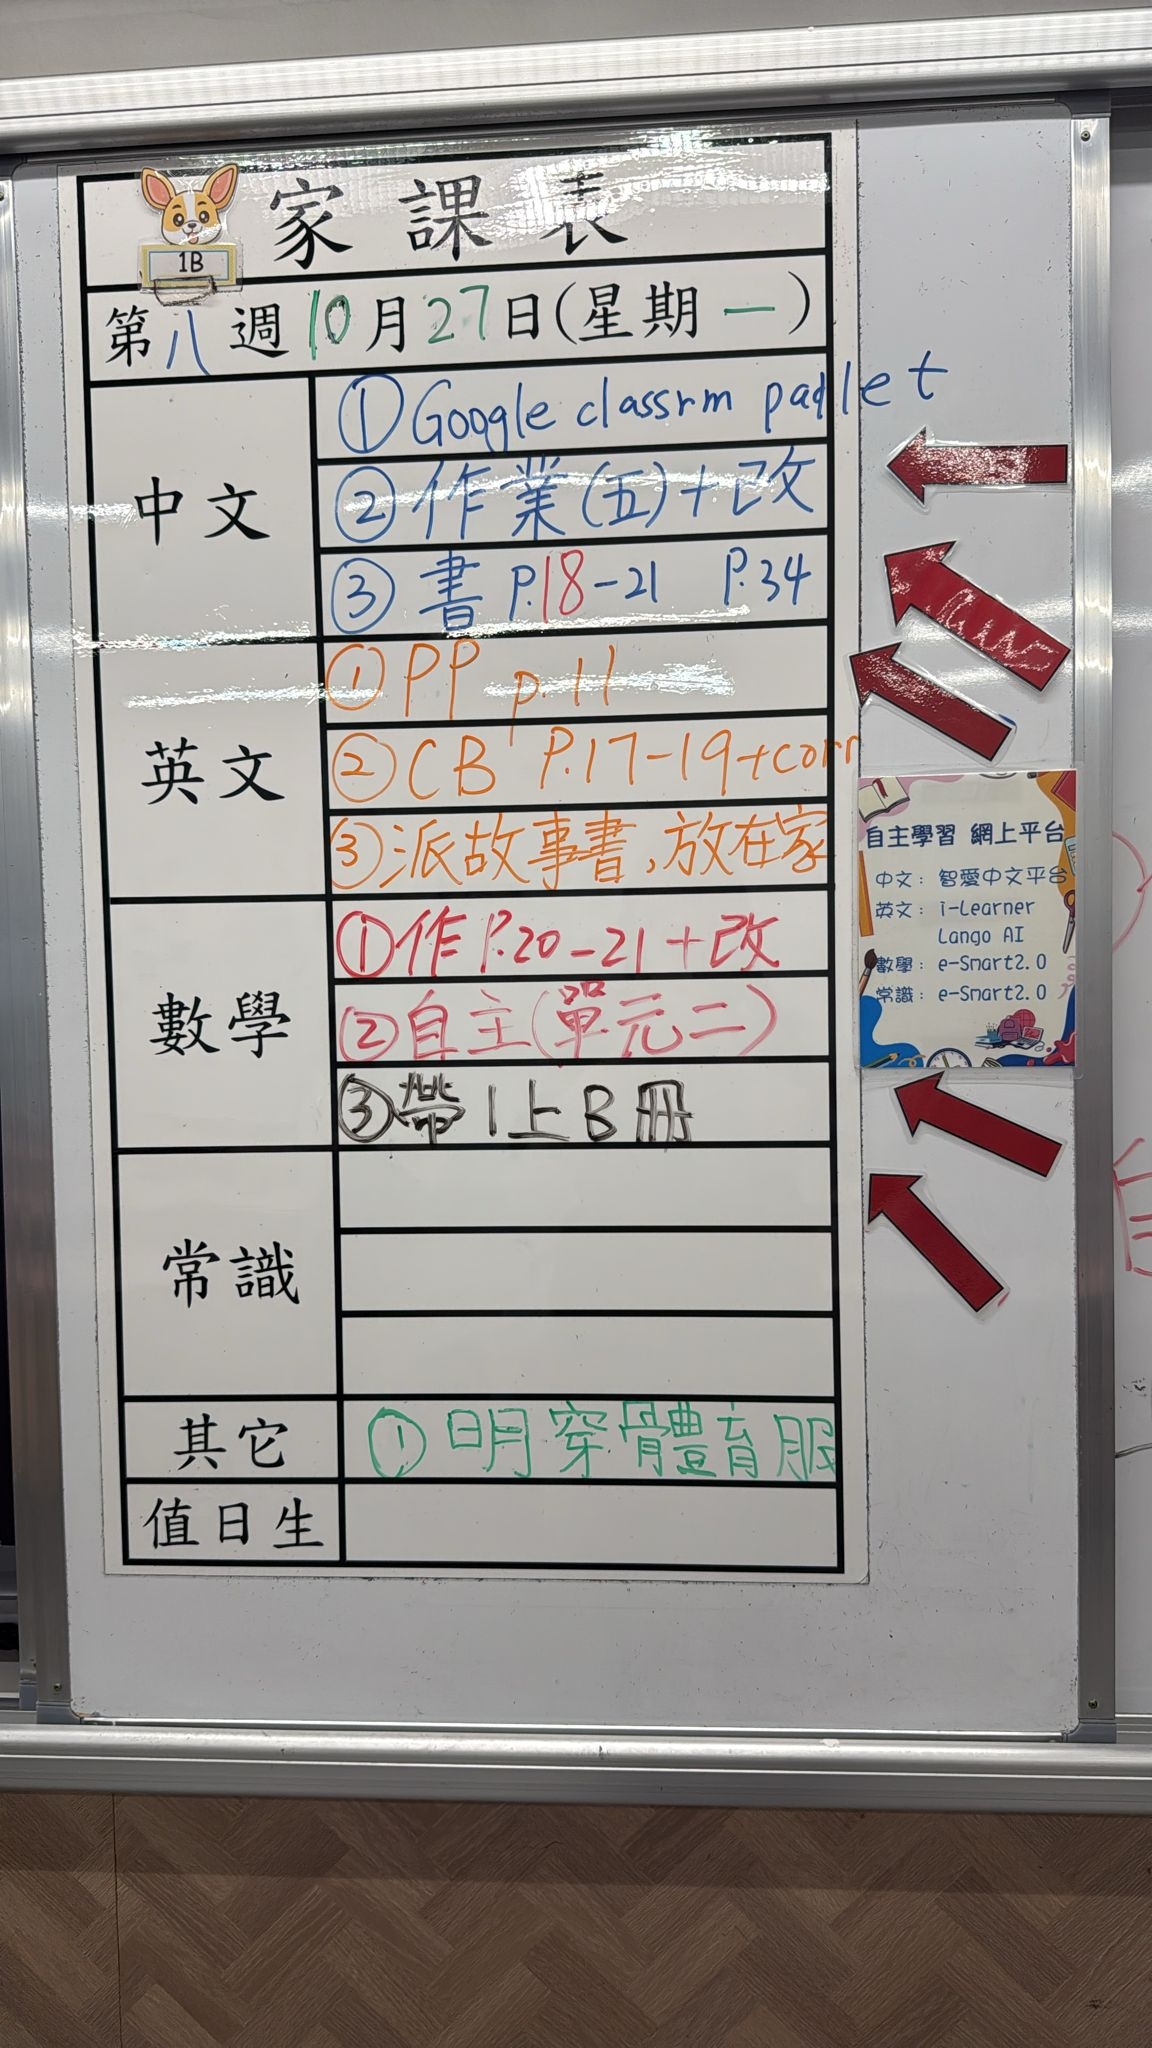 家課表
1B
第八週10月27日(星期一)
中文
①Google classrm padlet
②作業(五)+改
③書 P.18-21 P.34
英文
①PP p.11
②CB P.17-19+corr
③派故事書,放在家
數學
①作P.20-21+改
②自主(單元二)
③帶1上B冊
常識
其它
①明穿體育服
值日生
自主學習 網上平台
中文: 智愛中文平台
英文: i-Learner
Lango AI
數學: e-Smart2.0
常識: e-Smart2.0